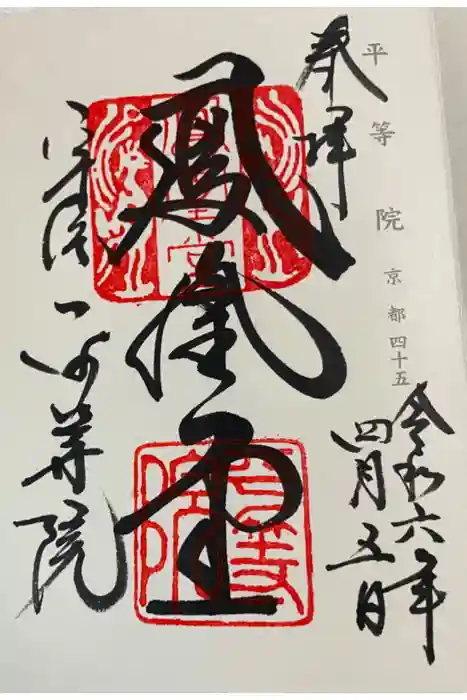 平等院 京都四十五
奉拝
令和六年
四月五日
鳳凰堂
平等院